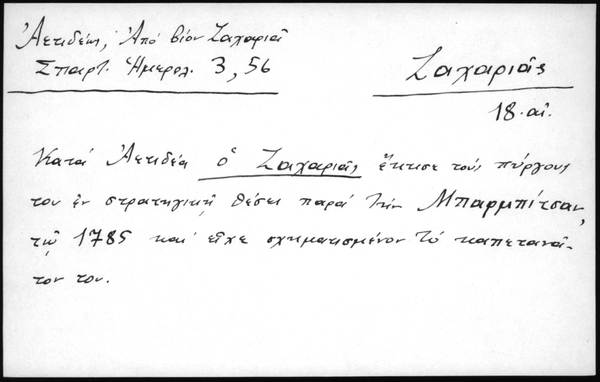 Ἀετιδέως, Ἀπό βίον Ζαχαριᾶ
Σπαρτ. Ἡμερολ. 3, 56
Ζαχαριᾶς
18. αἰ.
Κατά Ἀετιδέα ὁ Ζαχαριᾶς ἔκτισε τούς πύργους
του ἐν στρατηγικῇ θέσει παρά τήν Μπαρμπίτσαν,
τῷ 1785 καί εἶχε σχηματισμένον τό καπετανᾶ-
τον του.